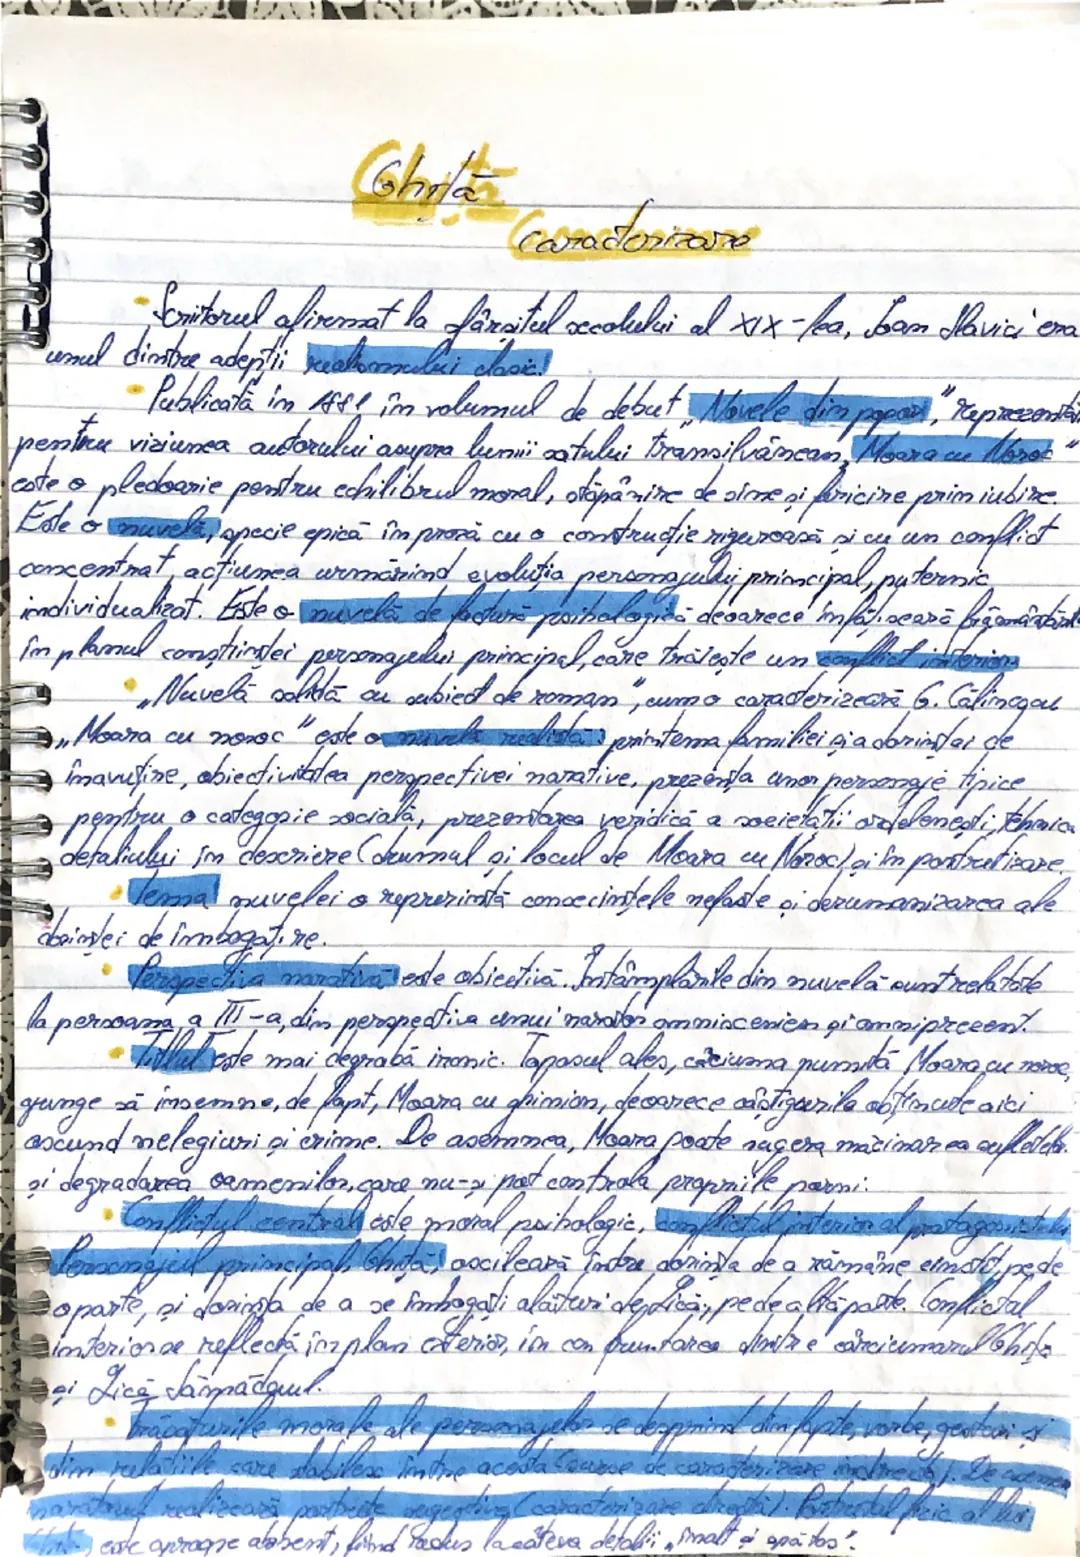 Ghiță
Caracterizare
Scriitorul afirmat la sfârșitul secolului al XIX-lea, Ioan Slavici era
unul dintre adepții realismului clasic!
Publicată în 1881 în volumul de debut "Novele din popor", reprezentativă
pentru viziunea autorului asupra lumii satului transilvănean, "Moara cu Noroc"
este o pledoarie pentru echilibrul moral, stăpânire de sine și fericire prin iubire.
Este o nuvelă, specie epică în proză cu o construcție riguroasă și cu un conflict
concentrat, acțiunea urmărind evoluția personajului principal, puternic
individualizat. Este o nuvelă de factură psihologică deoarece înfățișează frământările
în planul conștiinței personajului principal, care trăiește un conflict interior.
"Nuvelă solidă cu subiect de roman", cum o caracterizează G. Călinescu
"Moara cu noroc" este o nuvelă realistă: prin tema familiei și a dorinței de
înavuțire, obiectivitatea perspectivei narative, prezența unor personaje tipice
pentru o categorie socială, prezentarea veridică a societății ardelenești, tehnica
detaliului în descriere (drumul și locul de Moara cu Noroc) și în portretizare.
Tema nuvelei o reprezintă consecințele nefaste și dezumanizarea ale
dorinței de îmbogățire.
Perspectiva narativă este obiectivă. Întâmplările din nuvelă sunt relatate
la persoana a III-a, din perspectiva unui narator omniscenien și omniprezent.
Titlul este mai degrabă ironic. Toposul ales, cârciuma numită Moara cu noroc,
ajunge să însemne, de fapt, Moara cu ghinion, deoarece câștigurile obținute aici
ascund nelegiuiri și crime. De asemnea, Moara poate sugera măcinarea sufletelor
și degradarea oamenilor, care nu-și pot controla propriile porniri.
Conflictul central este moral psihologic, conflictul interior al protagonistului.
Personajul principal, Ghiță, oscilează între dorința de a rămâne cinstit, pe de
o parte, și dorința de a se îmbogăți alături de Lică, pe de altă parte. Conflictul
interior se reflectă în plan exterior, în confruntarea dintre cârciumarul Ghiță
și Lică Sămădăul.
Trăsăturile morale ale personajelor se desprind din fapte, vorbe, gesturi și
din relațiile care stabilesc între acesta (surse de caracterizare indirectă). De asemenea
naratorul realizează portrete sugestive (caracterizare directă). Portretul fizic al lui
Ghiță este aproape absent, fiind redus la câteva detalii "înalt și spătos".